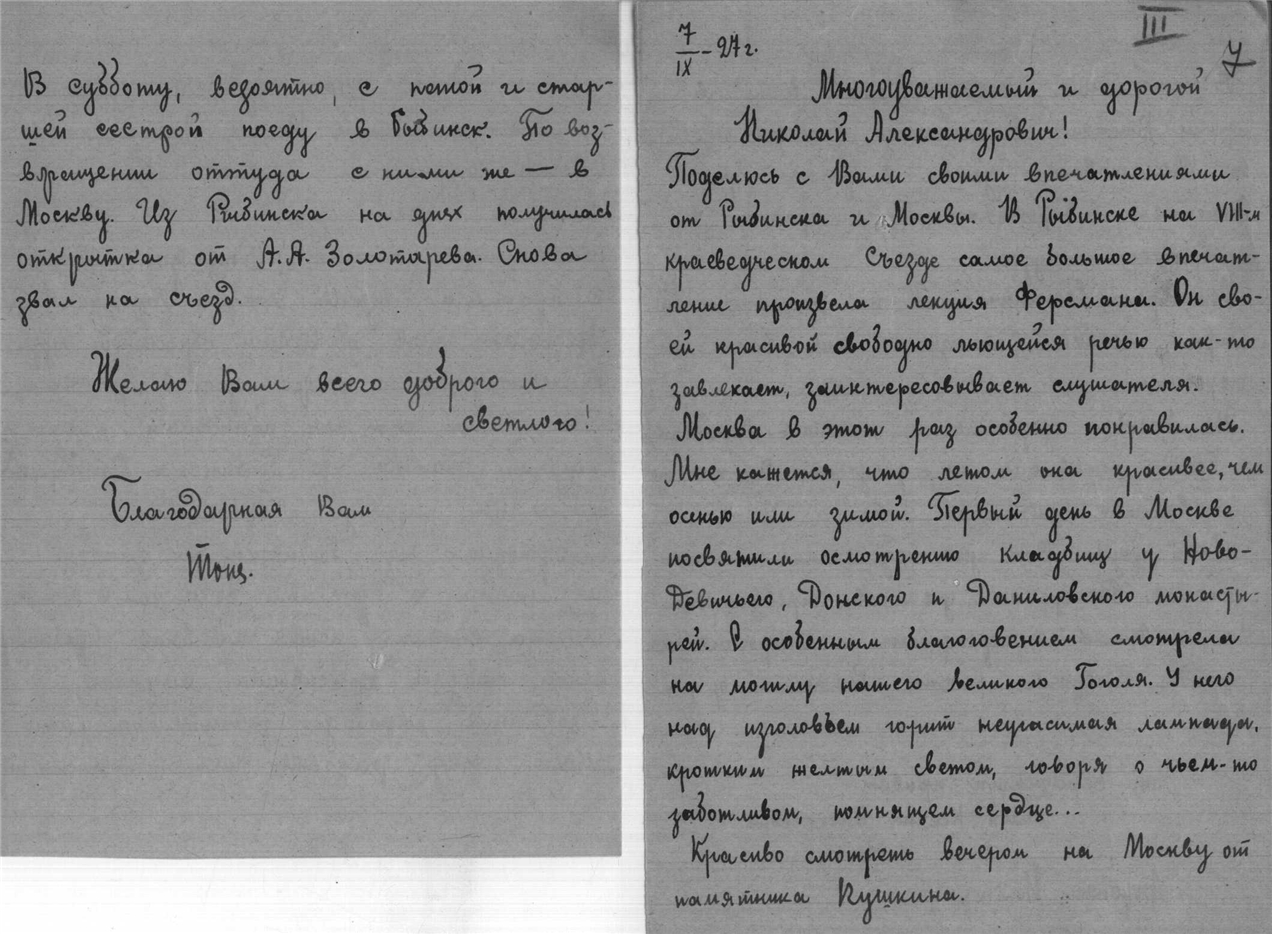 В субботу, вероятно, с папой и стар-
шей сестрой поеду в Рыбинск. По воз-
вращении оттуда с ними же — в
Москву. Из Рыбинска на днях получилась
открытка от А.А. Золотарева. Снова
звал на съезд.
Желаю Вам всего доброго и
светлого!
Благодарная Вам
III
7
7/IX – 27 г.
Многоуважаемый и дорогой
Николай Александрович!
Поделюсь с Вами своими впечатлениями
от Рыбинска и Москвы. В Рыбинске на VIII-м
краеведческом Съезде самое большое впечат-
ление произвела лекция Ферсмана. Он сво-
ей красивой свободно льющейся речью как-то
завлекает, заинтересовывает слушателя.
Москва в этот раз особенно понравилась.
Мне кажется, что летом она красивее, чем
осенью или зимой. Первый день в Москве
посвятили осмотрению кладбищ у Ново-
Девичьего, Донского и Даниловского монасты-
рей. С особенным благоговением смотрела
на могилу нашего великого Гоголя. У него
над изголовьем горит неугасимая лампада,
кротким желтым светом, говоря о чьем-то
заботливом, помнящем сердце...
Красиво смотреть вечером на Москву от
памятника Пушкина.